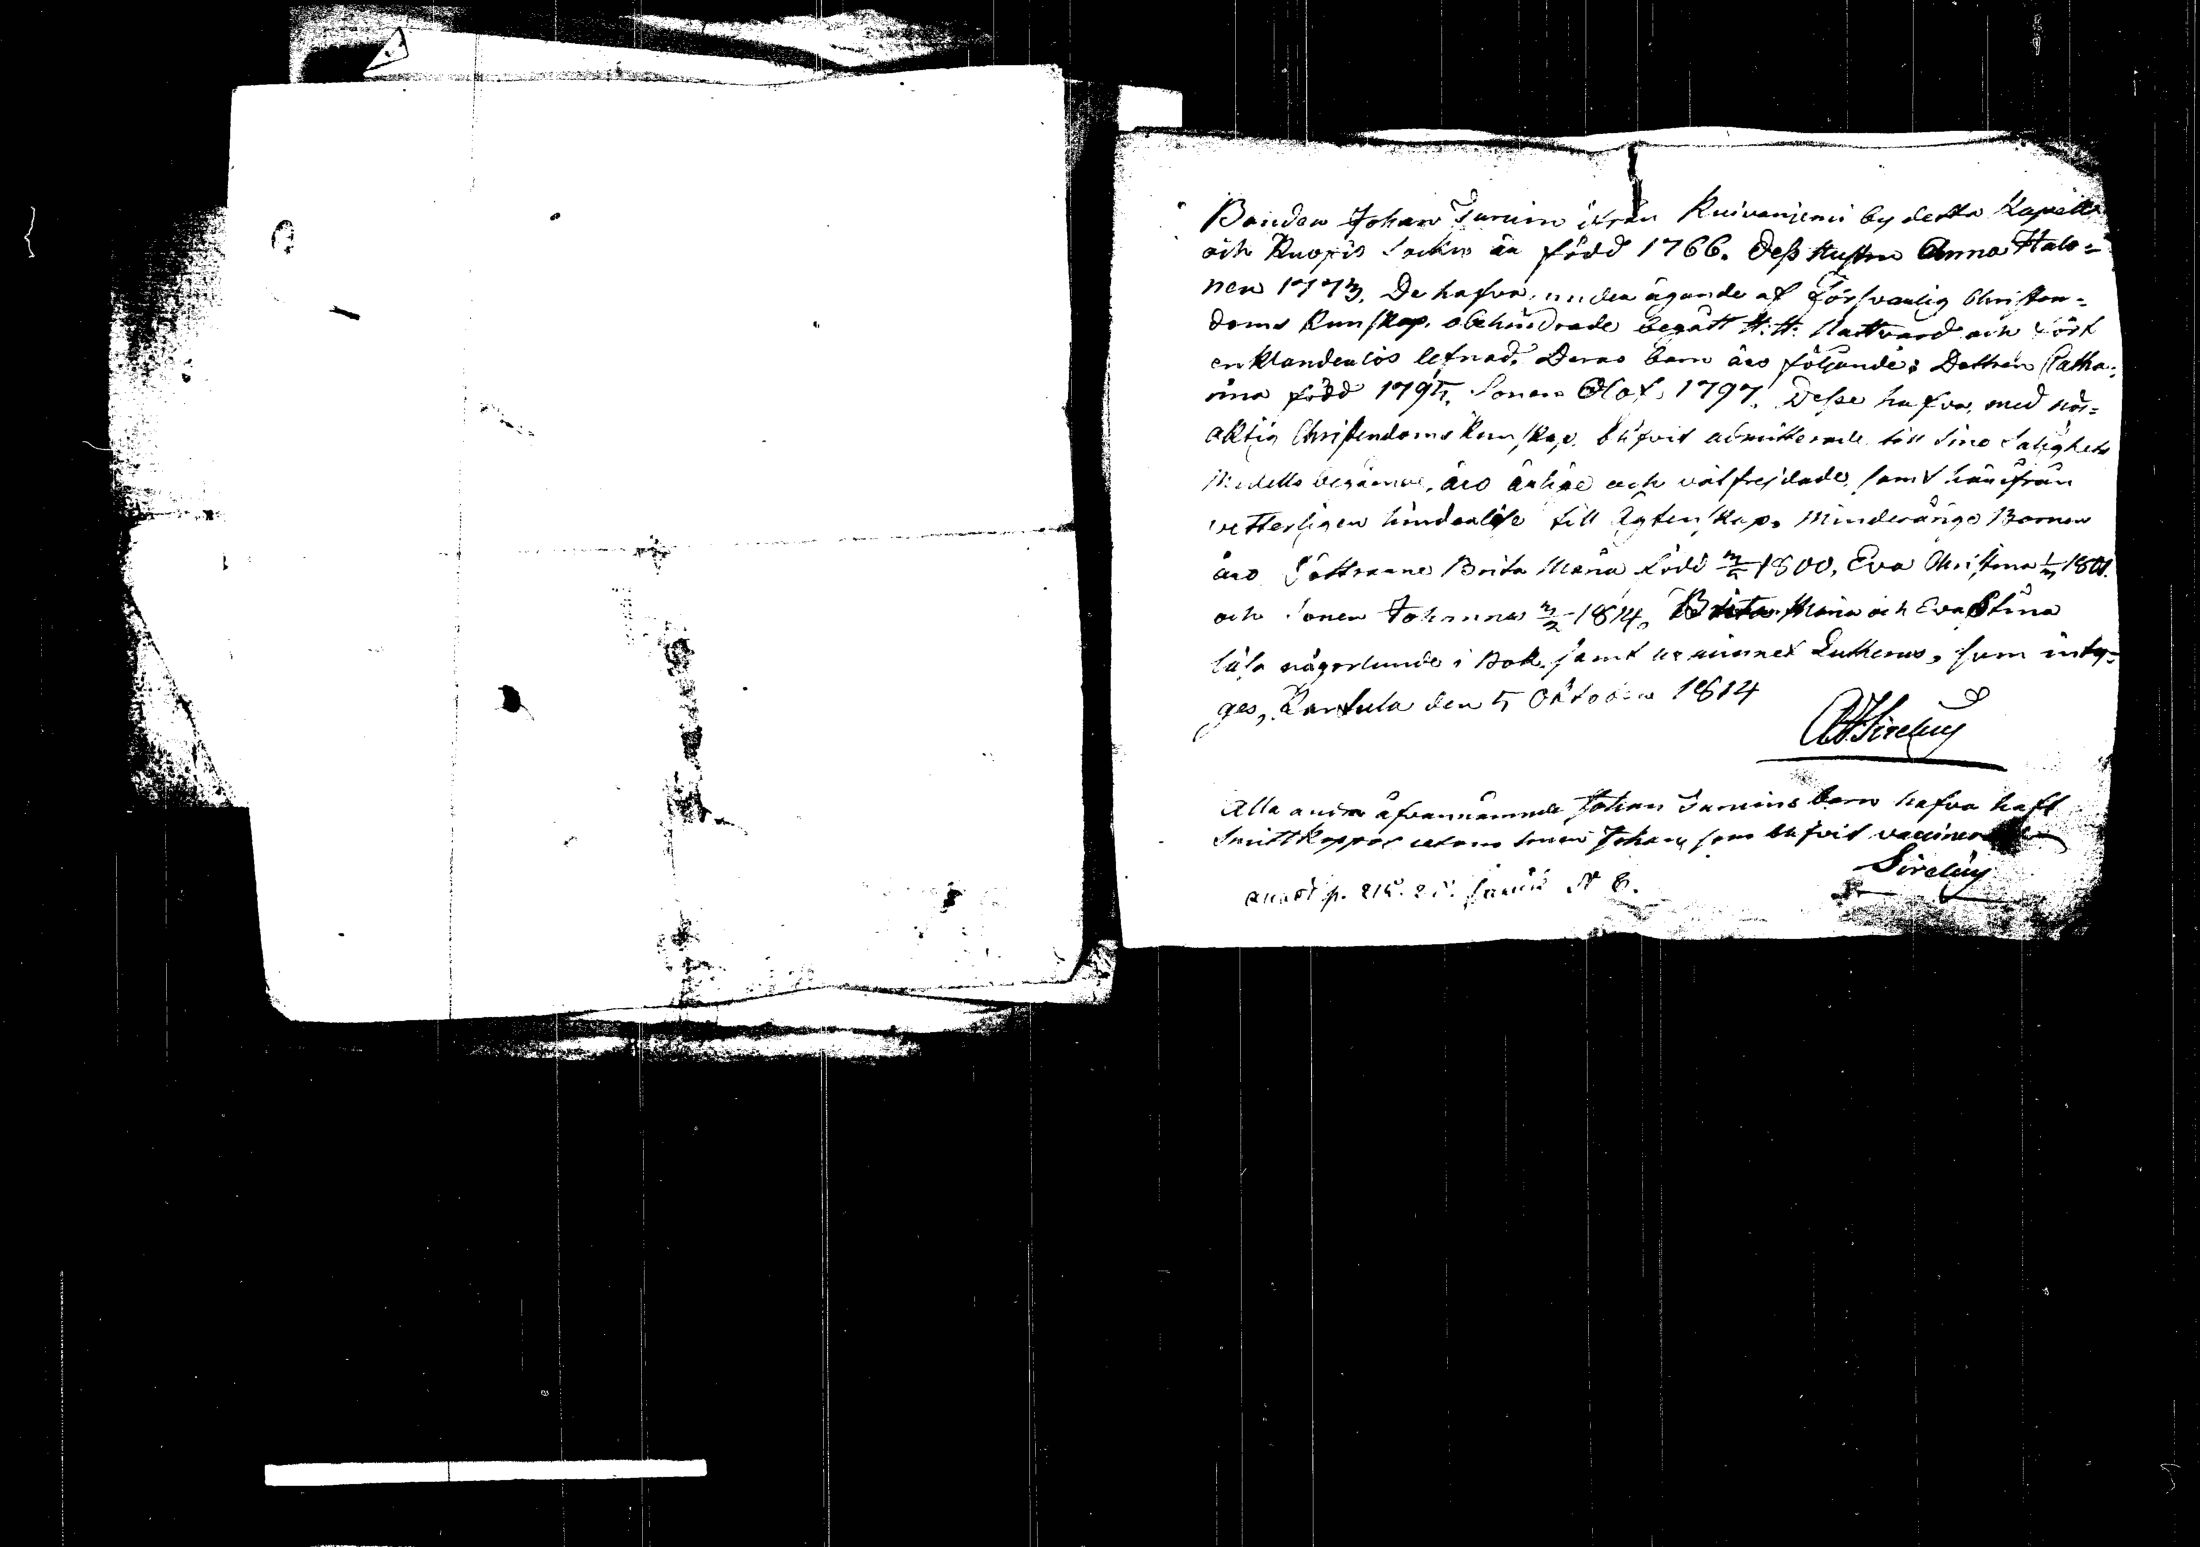 Bonden Johan Jumin ifrån Kuivanjemi by detta Kapell
och Kuopio Sockn är född 1766. Dess Hustru Anna Halo=
nen 1773. De hafva, under ägande af Försvarlig Christen=
doms Kunskap, obehindrade begått H: H: Nattvard och fört
en klanderlös lefnad. Deras barn äro följande: Dottren Catha=
rina född 1795, Sonen Olof 1797. Desse hafva, med nöj=
aktig Christendoms Kunskap, blifvit admitterade till sine Salighets
Medels begående, äro ärlige och välfrejdade, samt härifrån
vetterligen hinderlöse till Ägtenskap. Minderårige Barnen
äro Döttrarne Brita Maria född 1800, Eva Christina 1801.
och Sonen Johannes 3/2 1814. Brita Maria och Eva Stina
läsa någorlunda i Bok, samt ur minnet Lutherus, som inty=
ges, Karttula den 5 Oktober 1814
Sirelius
Alla andra ofvannämnde Johan Jumins barn hafva haft
Smittkoppor utom sonen Johan, som blifvit vaccinerad
Sirelius
p. 215.